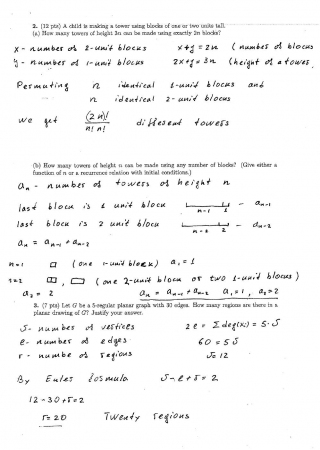 2. (12 pts) A child is making a tower using blocks of one or two units tall.
(a) How many towers of height 3n can be made using exactly 2n blocks?
x - number of 2-unit blocks x+y = 2n (number of blocks
y - number of 1-unit blocks 2x+y = 3n (height of a tower
Permuting n identical 1-unit blocks and
n identical 2-unit blocks
we get (2n)! / n! n! different towers
(b) How many towers of height n can be made using any number of blocks? (Give either a
function of n or a recurrence relation with initial conditions.)
an - number of towers of height n
last block is 1 unit block n-1 1 - an-1
last block is 2 unit block n-2 2 - an-2
an = an-1 + an-2
n=1 (one 1-unit block) a1 = 1
n=2 , (one 2-unit block or two 1-unit blocks)
a2 = 2 an = an-1 + an-2 a1 = 1, a2 = 2
3. (7 pts) Let G be a 5-regular planar graph with 30 edges. How many regions are there is a
planar drawing of G? Justify your answer.
v - number of vertices 2e = Σ deg(vi) = 5·v
e - number of edges 60 = 5v
r - numbe of regions v=12
By Eulers formula v-e+r = 2
12-30+r=2
r=20 Twenty regions